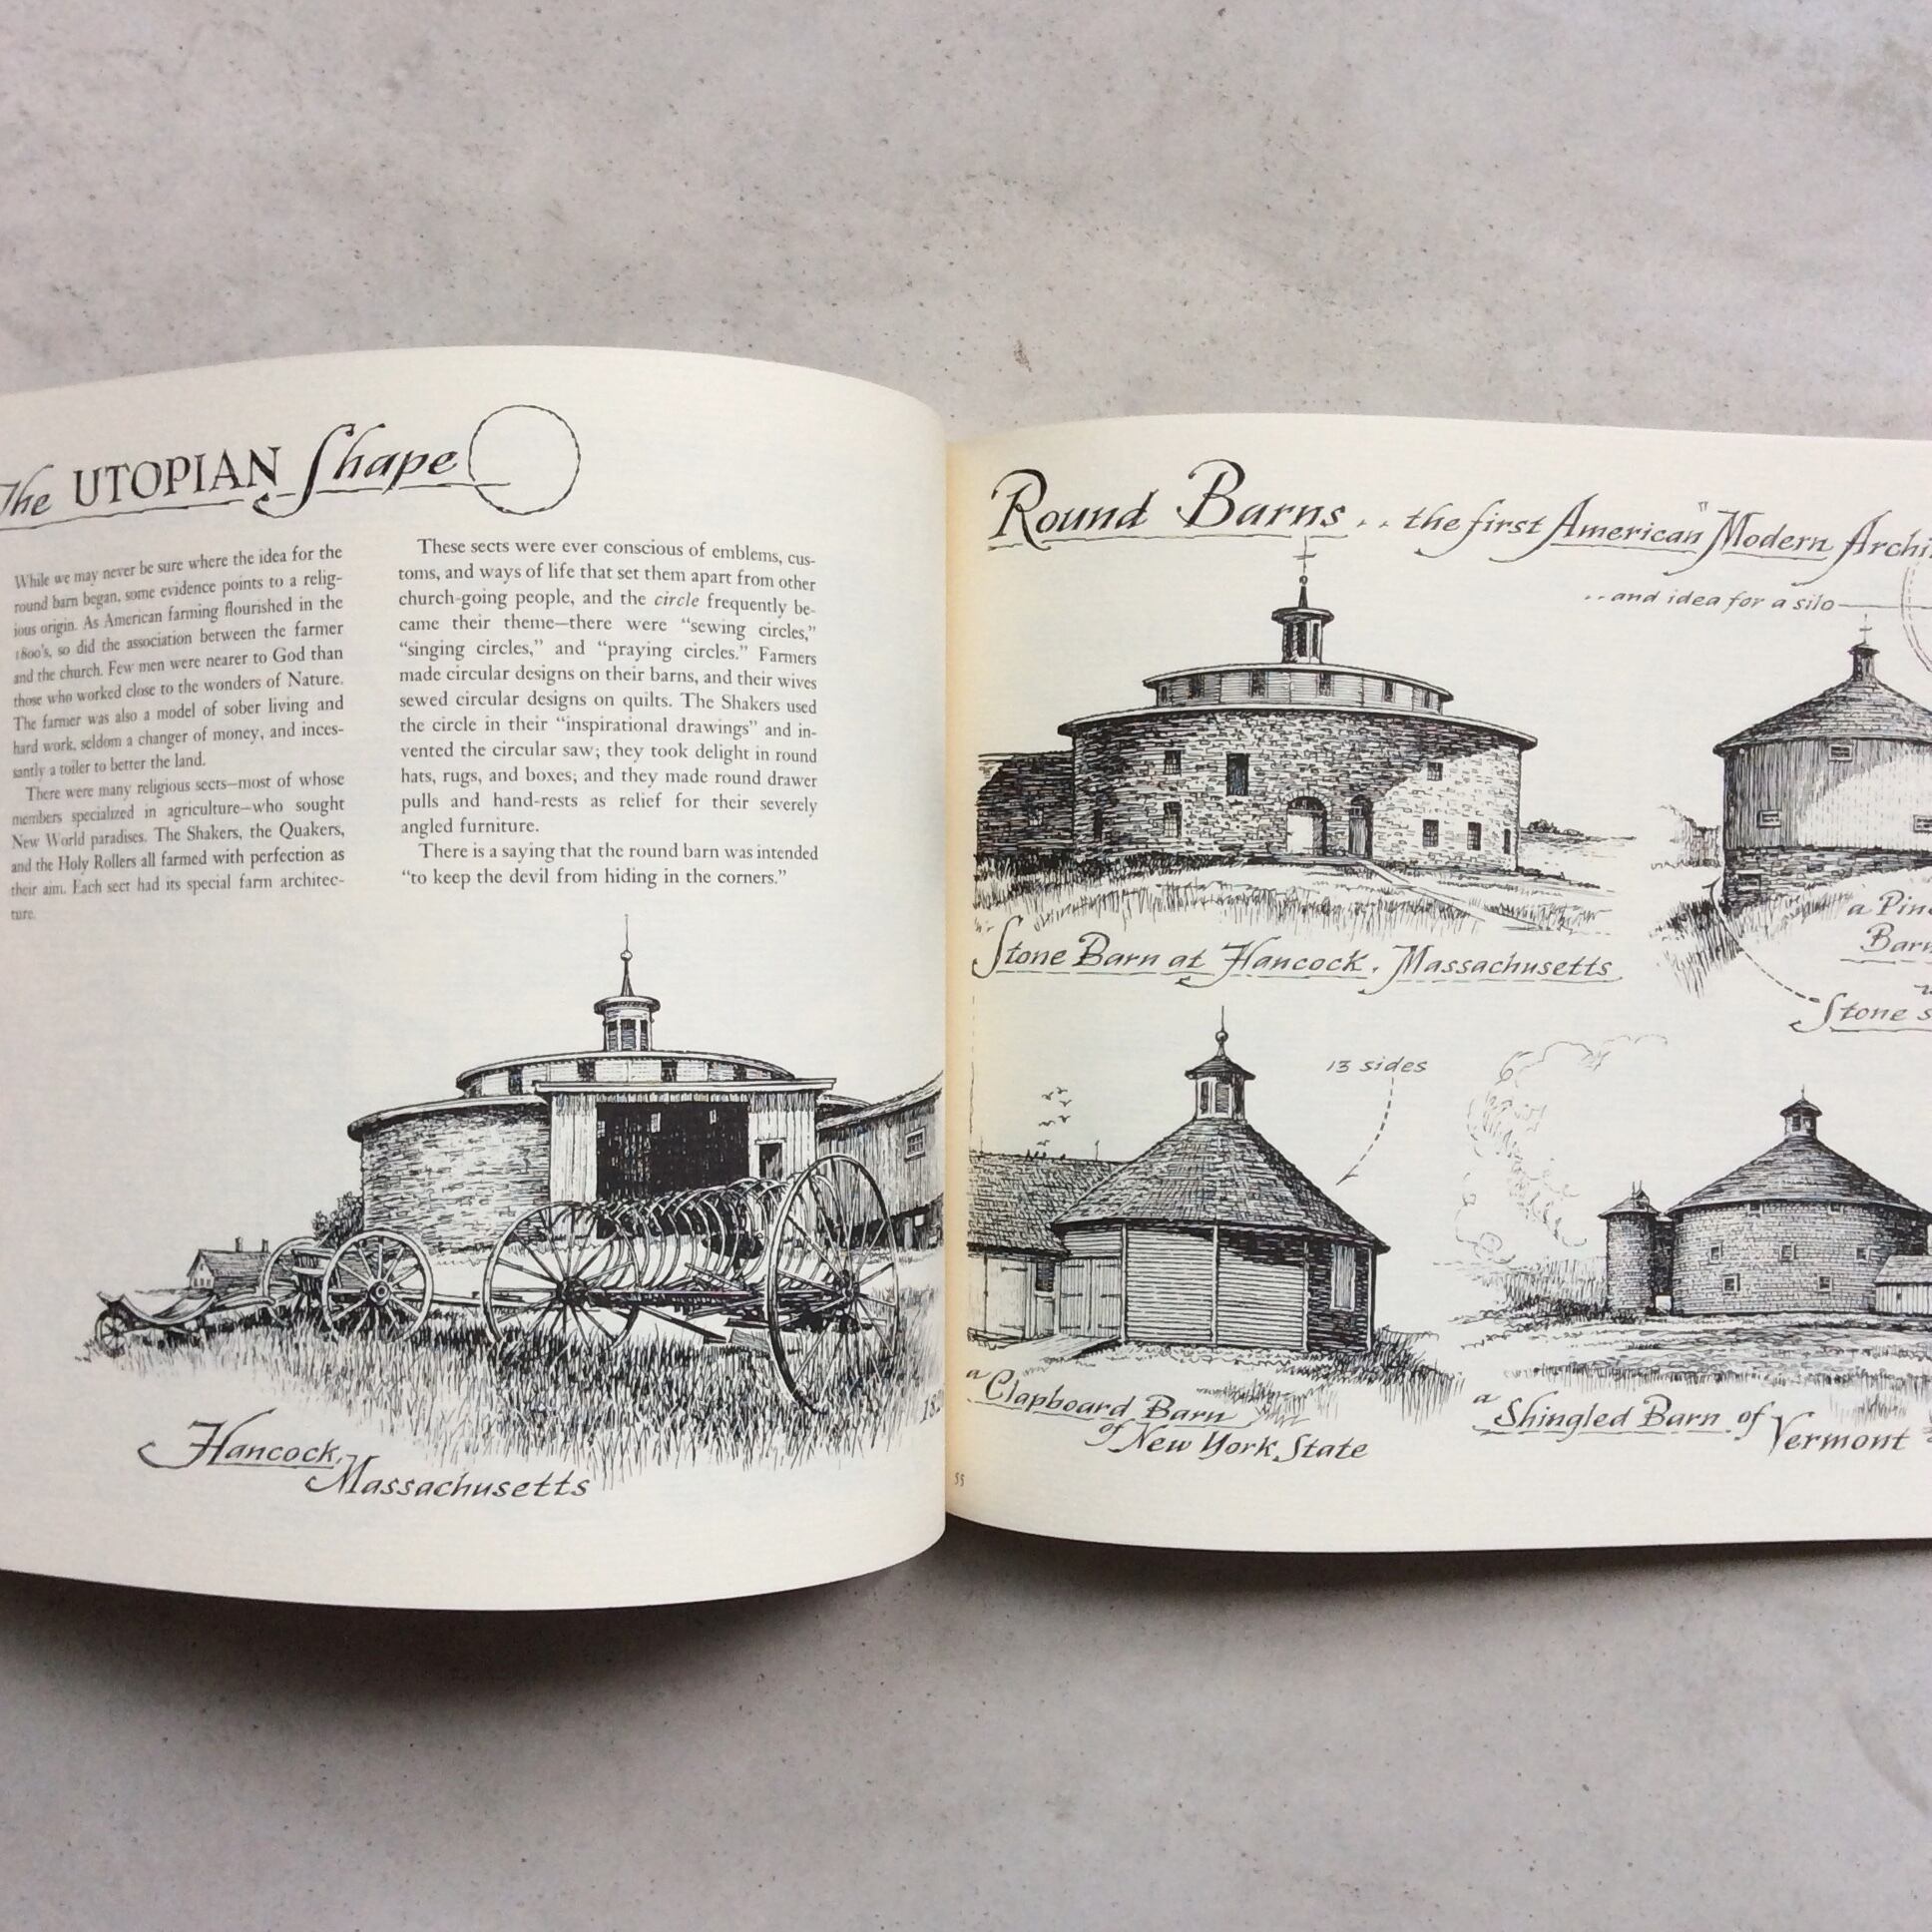 The UTOPIAN Shape
While we may never be sure where the idea for the
round barn began, some evidence points to a relig-
ious origin. As American farming flourished in the
1800's, so did the association between the farmer
and the church. Few men were nearer to God than
those who worked close to the wonders of Nature.
The farmer was also a model of sober living and
hard work, seldom a changer of money, and inces-
santly a toiler to better the land.
There were many religious sects—most of whose
members specialized in agriculture—who sought
New World paradises. The Shakers, the Quakers,
and the Holy Rollers all farmed with perfection as
their aim. Each sect had its special farm architec-
ture.
These sects were ever conscious of emblems, cus-
toms, and ways of life that set them apart from other
church-going people, and the circle frequently be-
came their theme—there were “sewing circles,”
“singing circles,” and “praying circles.” Farmers
made circular designs on their barns, and their wives
sewed circular designs on quilts. The Shakers used
the circle in their “inspirational drawings” and in-
vented the circular saw; they took delight in round
hats, rugs, and boxes; and they made round drawer
pulls and hand-rests as relief for their severely
angled furniture.
There is a saying that the round barn was intended
“to keep the devil from hiding in the corners.”
Hancock,
Massachusetts
Round Barns .. the first American "Modern Archi
..and idea for a silo
Stone Barn at Hancock, Massachusetts
a Pin
Barn
Stone s
13 sides
a Clapboard Barn
of New York State
a Shingled Barn of
Vermont
55